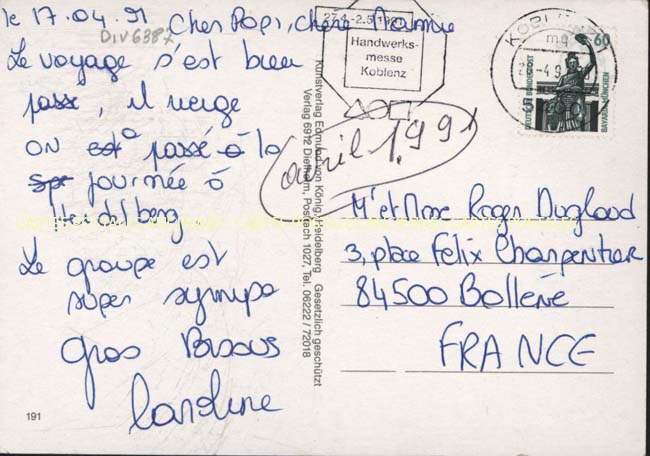 le 17.04.91 Cher Papi, chère Mamie
DIV6387
Le voyage s'est bien
passé, il neige
on est a passé à la
journée à
Heidelberg
Le groupe est
super sympa
gros Bisous
Caroline
191
27.4.-2.5.1991
Handwerks-
messe
Koblenz
KOBLENZ
60
DEUTSCHE BUNDESPOST
BAVARIA MÜNCHEN
avril 1991
Kunstverlag Edmund von König, Heidelberg Gesetzlich geschützt
Verlag 6912 Dielheim, Postfach 1027, Tel. 06222 / 72018
Mr et Mme Roger Dugland
3, place Félix Charpentier
84500 Bollène
FRANCE